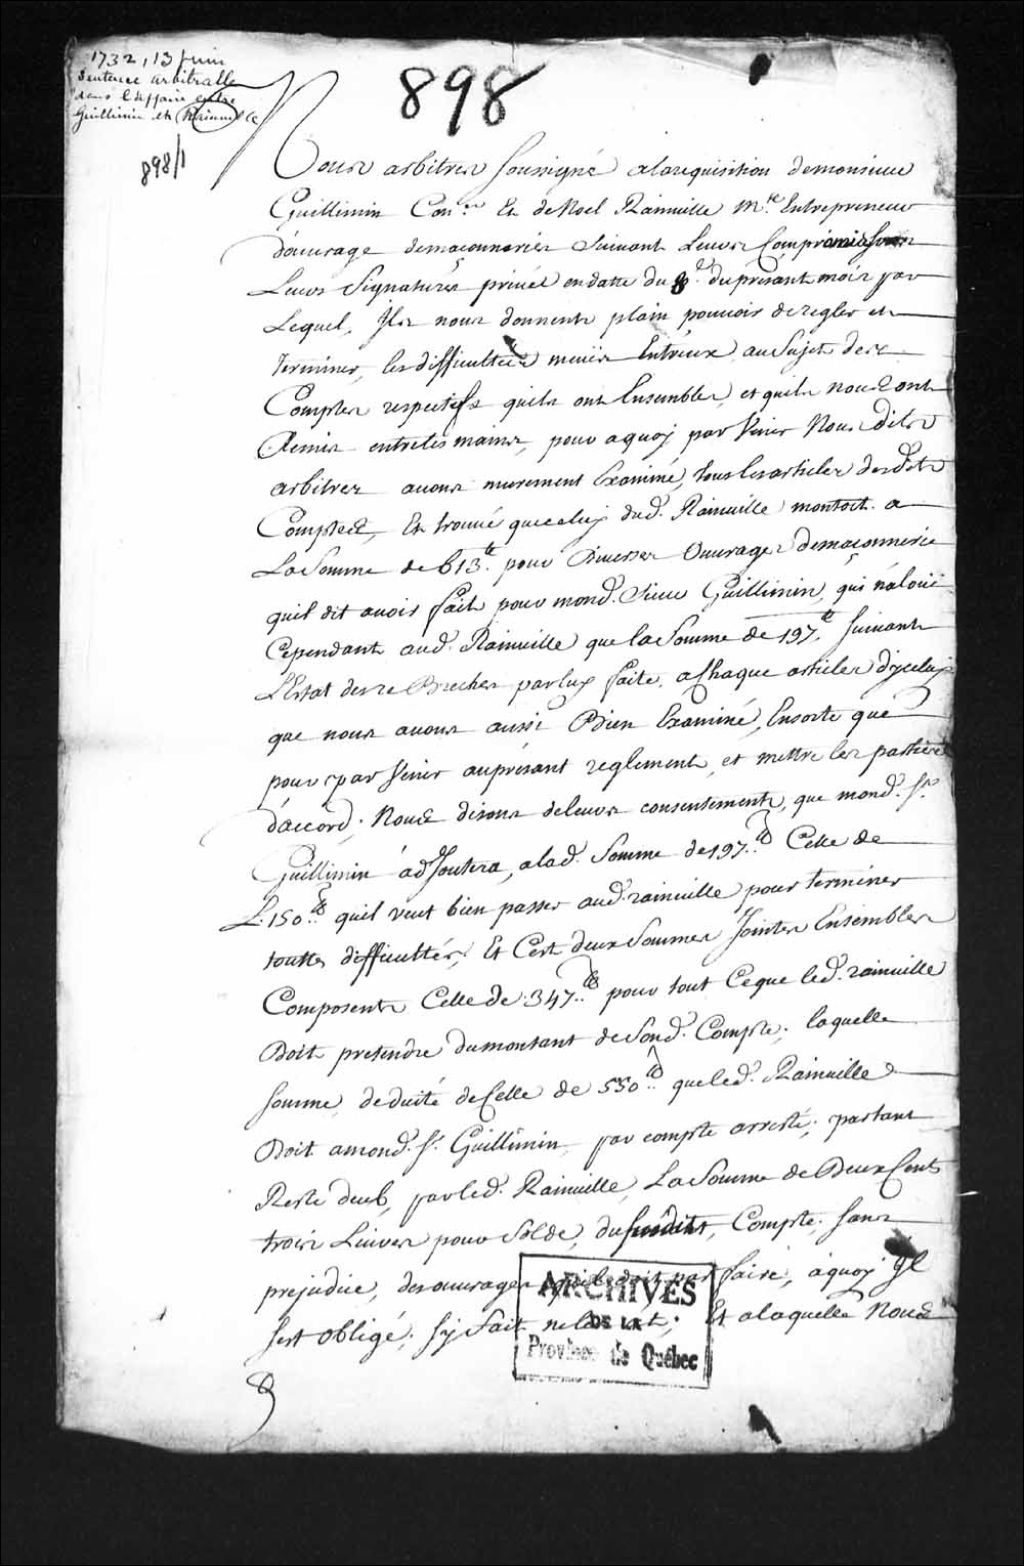 1732, 13 juin
Sentence arbitralle
dans l'affaire entre
Guillimin et Rainville
898
898/1
Nous arbitres soussigné alarequisition demonsieur
Guillimin Con.er Et deNoel Rainville M.e Entrepreneur
d'ouvrage demaçonneries suivant Leurs Compromis sous
Leurs Signatures privée endatte du 8.e dupresant mois par
Lequel, Ils nous donnents plain pouvoir deregler et
terminer, les difficultées Entr'eux au Sujet de
Comptes respectifs quils ont Ensembles, et quils nous ont
Remis entreles mains, pour aquoy parvenir Nous dits
arbitres avons murement Examiné, tous les articles desdits
Comptes, Et trouvé queceluy dud. Rainville montoit a
LaSomme de 613.tt pour Diverses Ouvrages demaçonnerie
quil dit avoir fait pour mond. Sieur Guillimin, qui n'aloüe
Cependant aud. Rainville que la Somme de 197.tt suivant
L'Estat parluy faite, a Chaque articles d'yceluy
que nous avons aussi Bien Examiné, Ensorte que
pour parvenir auprésant reglement, et mettre les parties
d'accord, Nous disons deleurs consentements, que mond. S.r
Guillimin adJoutera, alad. Somme de 197.tt Celle de
L.150.tt quil veut bien passer aud. rainville pour terminer
touttes difficultés, Et Cest deux Sommes Jointes Ensembles
Composents Celle de 347.tt pour tout Ceque led. rainville
Doit pretendre dumontant deSond. Compte, laquelle
somme, deduité deCelle de 550.tt queled. Rainville
Doit amond. S.r Guillimin, par compte arresté, partant
Reste deub, par led. Rainville, La Somme de Deux Cents
trois Livres pour Solde, du susdits, Compte, sans
prejudice, des ouvrages quil doit par faire, aquoy Il
sest obligé, sy fait ne l'a, Et alaquelle Nous
ARCHIVES
DE LA
Province de Québec